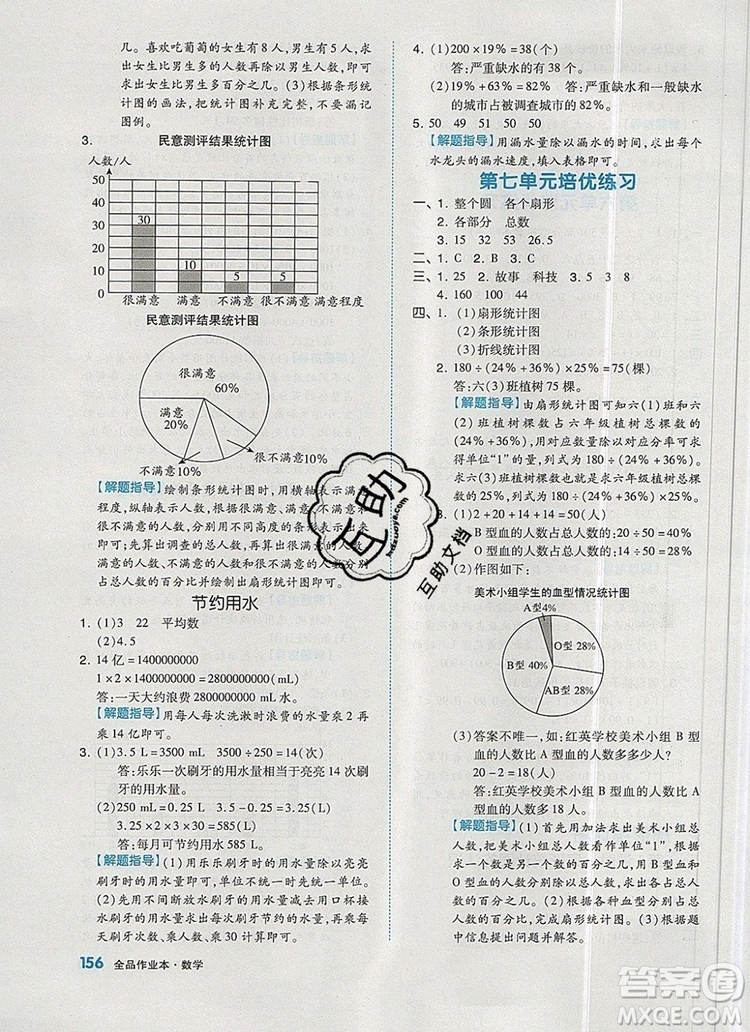 几。喜欢吃葡萄的女生有8人,男生有5人,求出女生比男生多的人数,再除以男生人数,即可求出女生比男生多百分之几。(3)根据条形统计图的画法,把统计图补充完整,不要漏记图例。
3. 民意测评结果统计图
人数/人
50
40
30
20
10
0
30
10
5
5
很满意 满意 不满意 很不满意 满意程度
民意测评结果统计图
很满意
60%
满意
20%
不满意10%
很不满意10%
【解题指导】绘制条形统计图时,用横轴表示满意
程度,纵轴表示人数,分别用不同高度的条形表示出来
即可;先算出调查的总人数,再分别计算出很满意的人
数、满意的人数、不满意的人数、很不满意的人数分别
占总人数的百分比并绘制出扇形统计图即可。
节约用水
1. (1)3 22 平均数
(2)4.5
2. 14亿=1400000000
1×2×1400000000
=2800000000(mL)
答:一天大约浪费2800000000 mL水。
【解题指导】用每人每次洗漱时浪费的水量乘2再
乘14亿即可。
3. (1)3.5 L=3500 mL 3500÷250=14(次)
答:乐乐一次刷牙的用水量相当于亮亮14次刷
牙的用水量。
(2)250 mL=0.25 L 3.5-0.25=3.25(L)
3.25×2×3×30=585(L)
答:每月可节约用水585 L。
【解题指导】(1)用乐乐刷牙时的用水量除以亮亮
刷牙时的用水量即可,计算过程中注意单位的换算。
(2)先用不间断放水刷牙时的用水量减去用口杯接
水刷牙的用水量求出每次刷牙节约的用水量,再乘每天
刷牙次数、乘人数、乘30计算即可。
156 全品作业本·数学
4. (1)200×19%=38(个)
答:严重缺水的城市有38个。
(2)19%+63%=82%
答:严重缺水和一般缺水
的城市占被调查城市的82%。
5. 50 49 51 50 50
【解题指导】用漏水量除以漏水的时间,求出每个
水龙头的漏水速度,填入表格即可。
第七单元培优练习
一、1. 整个圆 各个扇形
2. 各部分 总数
3. 15 32 53 26.5
二、1. C 2. B 3. C
三、1. 25 2. 故事 科技 3. 5 3 8
4. 160 100 44
四、1. (1)扇形统计图
(2)条形统计图
(3)折线统计图
2. 180÷(24%+36%)×25%=75(棵)
答:六(3)班植树75棵。
【解题指导】由扇形统计图可知六(1)班和六
(2)班植树棵数占六年级植树总棵数的(24%+
36%),用对应数量除以对应分率即可求得
单位“1”的量,列式为180÷(24%+36%)。
求六(3)班植树棵数也就是求六年级植树总棵
数的25%,列式为180÷(24%+36%)×25%。
3. (1)2+20+14+14=50(人)
B型血的人数占总人数的:20÷50=40%
O型血的人数占总人数的:14÷50=28%
(2)作图如下:
美术小组学生的血型情况统计图
A型4%
O型28%
B型40%
AB型28%
(3)答案不唯一,如:红英学校美术小组B型
血的人数比A型血的人数多多少人?
20-2=18(人)
答:红英学校美术小组B型血的人数比A型血
的人数多18人。
【解题指导】(1)首先用加法求出美术小组总人
数,把美术小组的总人数看作单位“1”,根据求一
个数是另一个数的百分之几,用B型血和
O型血的人数分别除以总人数,求出各占总人
数的百分之几,完成扇形统计图。(3)根据题
中信息提出问题再解答即可。
互助
hdzuoye.com
互助文档
答案圈
MXQE.COM